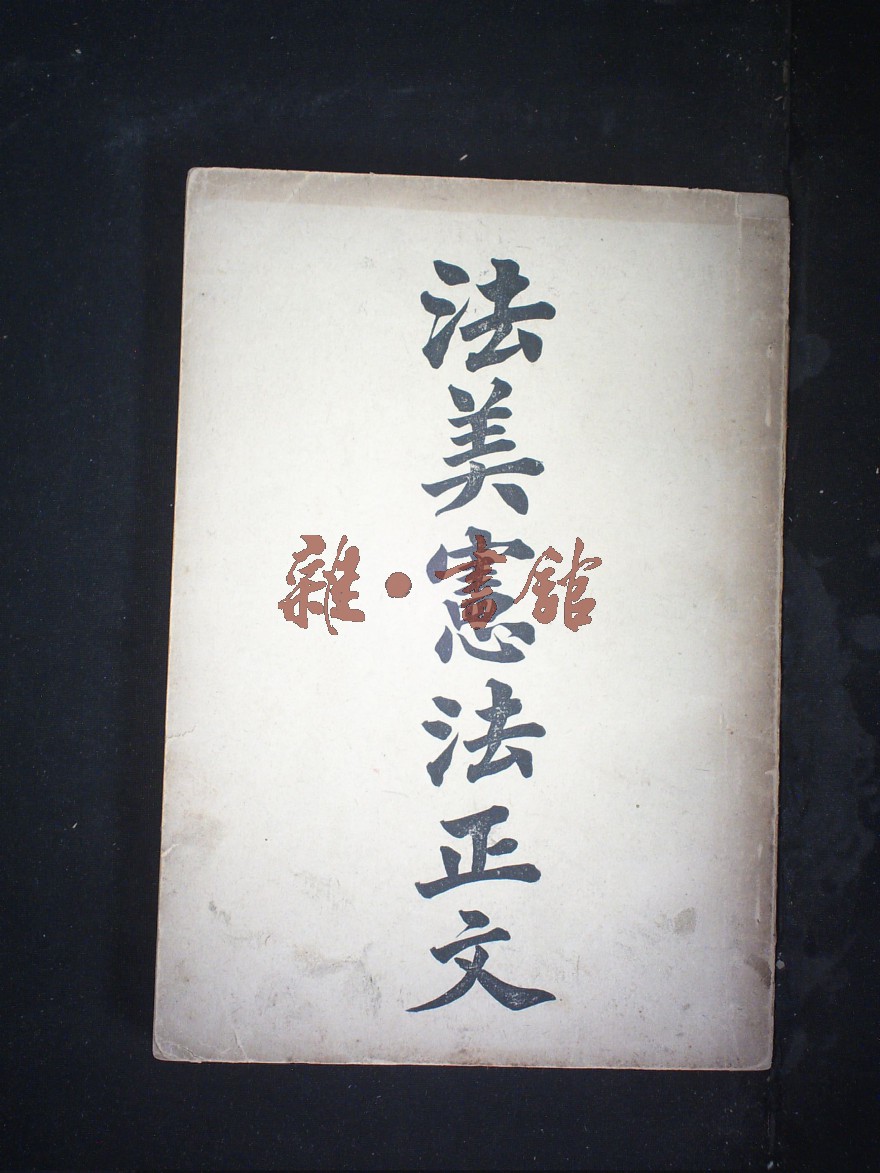 法美憲法正文
雜·書館